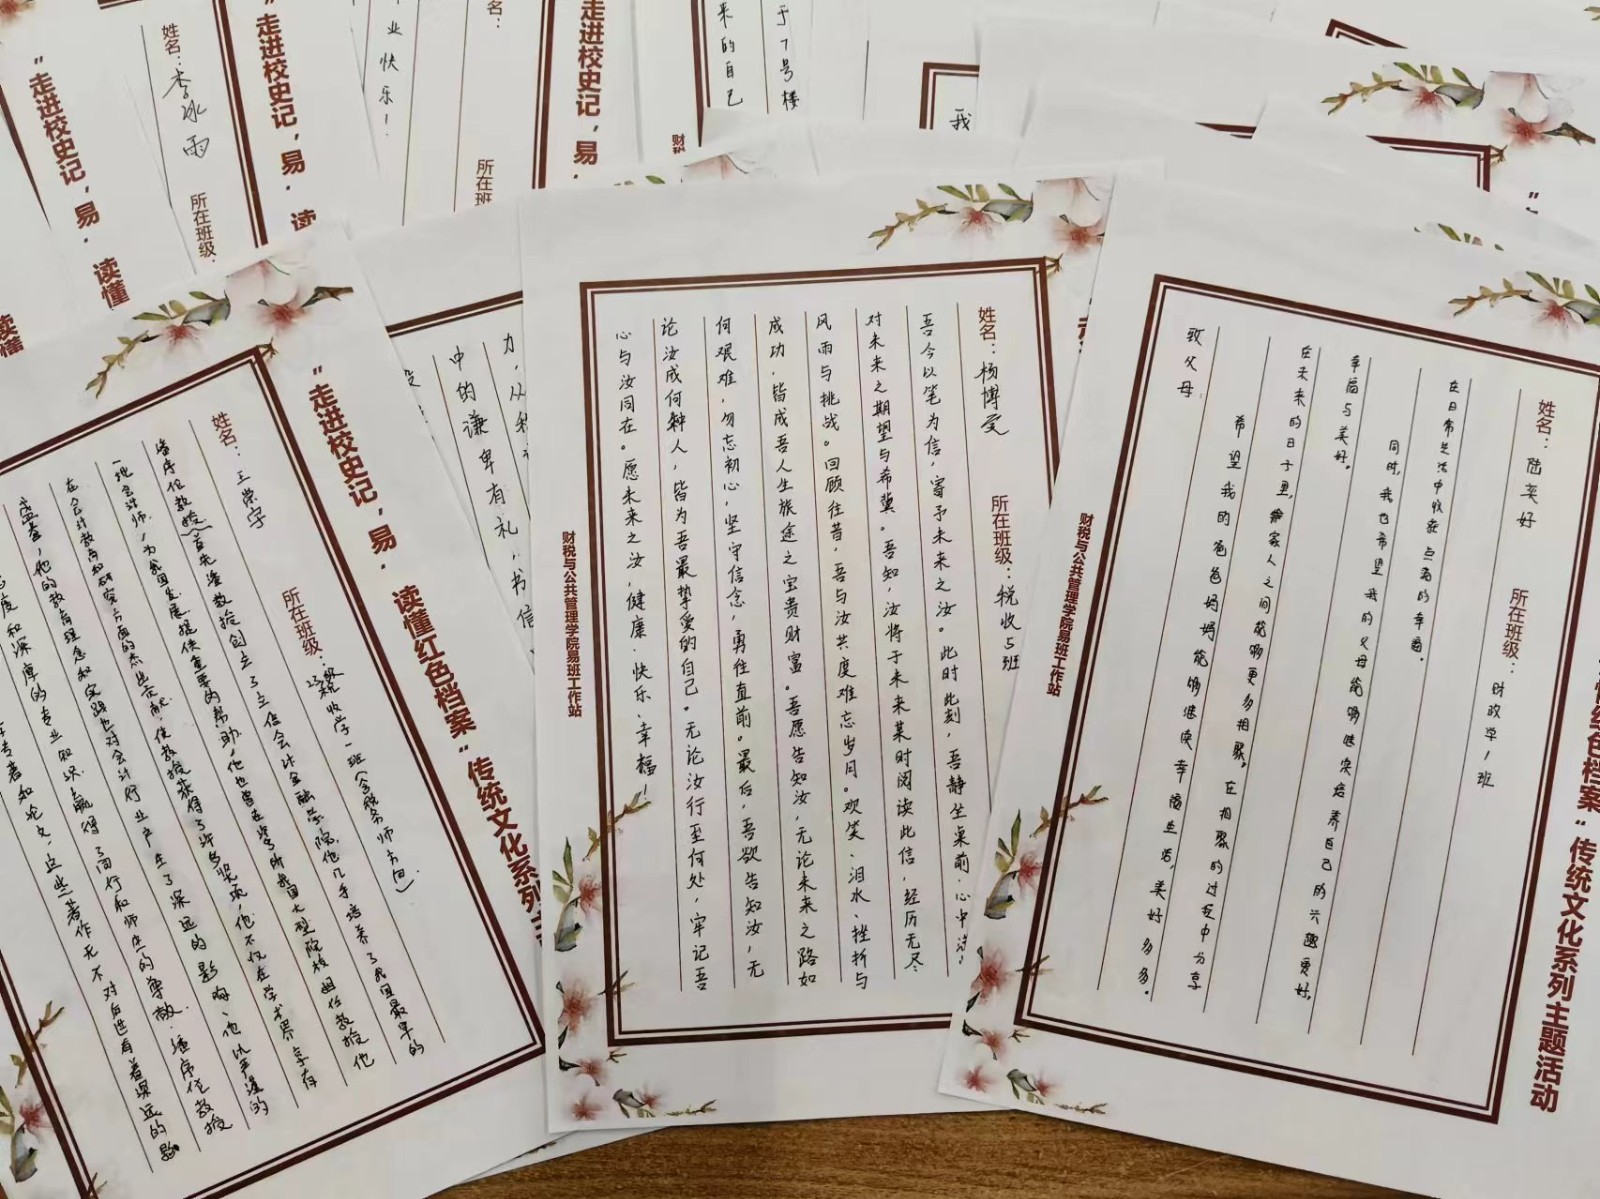 “走进校史记，易·读懂
姓名：李冰雨
所在班级：
“走进校史记，易·读
业快乐！
姓名：
所在班级
走进校史记，易·
来的自己
于7号楼
财税
我
力，从
中的谦卑有礼，书信
“走进校史记，易·读懂红色档案”传统文化系列主
姓名：王荣宇
所在班级：23级税收学一班（含税务师方向）
潘序伦教授（首先潘教授创立了立信会计金融学院，他几乎培养了我国最早的
一批会计师，为我国发展提供重要的帮助，他也曾在诸多所我国大型院校担任教授，他
在会计教育和研究方面的杰出贡献，使教授获得了许多奖项，他不仅在学术界享有
盛誉，他的教育理念和实践也对会计行业产生了深远的影响、他以严谨的
态度和深厚的专业知识，赢得了同行和师生的尊敬。潘序伦教授
专著和论文，这些著作无不对后世有着深远的影
姓名：杨博受
所在班级：税收5班
吾今以笔为信，寄予未来之汝。此时此刻，吾静坐桌前，心中
对未来之期望与希冀。吾知，汝将于未来某时阅读此信，经历无尽
风雨与挑战。回顾往昔，吾与汝共度难忘岁月。欢笑、泪水、挫折与
成功，皆成吾人生旅途之宝贵财富。吾愿告知汝，无论未来之路如
何艰难，勿忘初心，坚守信念，勇往直前。最后，吾欲告知汝，无
论汝成何种人，皆为吾最挚爱的自己。无论汝行至何处，牢记吾
心与汝同在。愿未来之汝，健康、快乐、幸福！
财税与公共管理学院易班工作站
姓名：陆英好
所在班级：财政学1班
在日常生活中收获点滴的幸福。
同时，我也希望我的父母能够继续培养自己的兴趣爱好，
幸福与美好。
在未来的日子里，家人之间能够更多相聚。在相聚的过程中分享
希望我的爸爸妈妈能够继续幸福生活，美好多多。
致父母：
财税与公共管理学院易班工作站
懂红色档案”传统文化系列主题活动